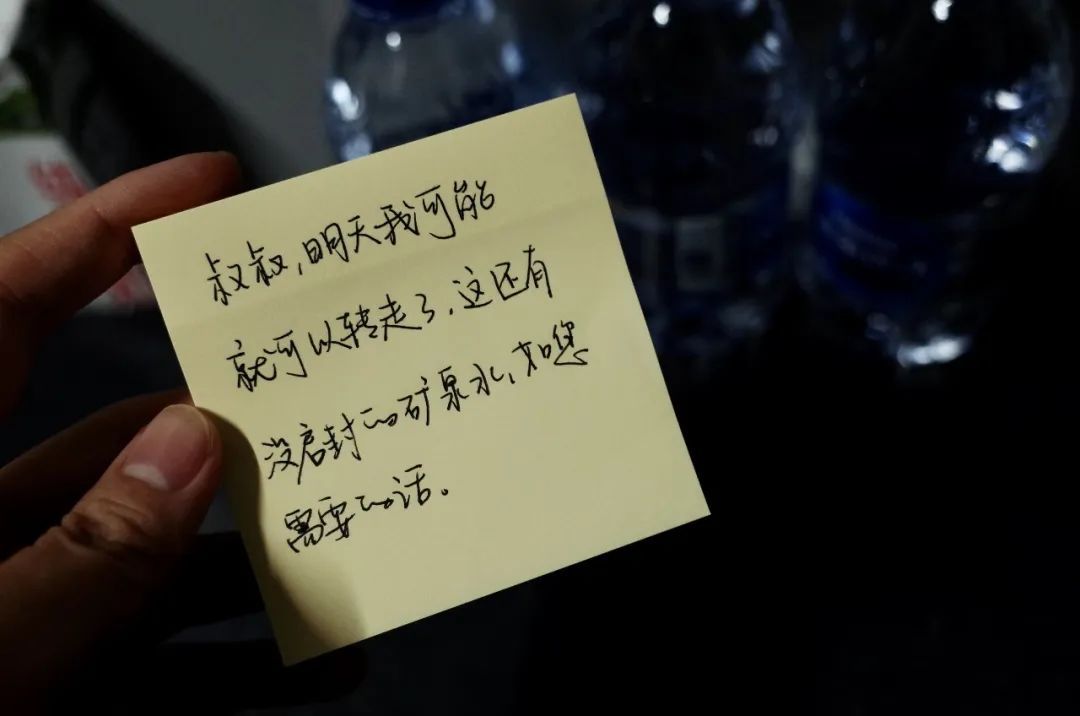 叔叔,明天我可能
就可以转走了,这还有
没启封的矿泉水,如您
需要的话。